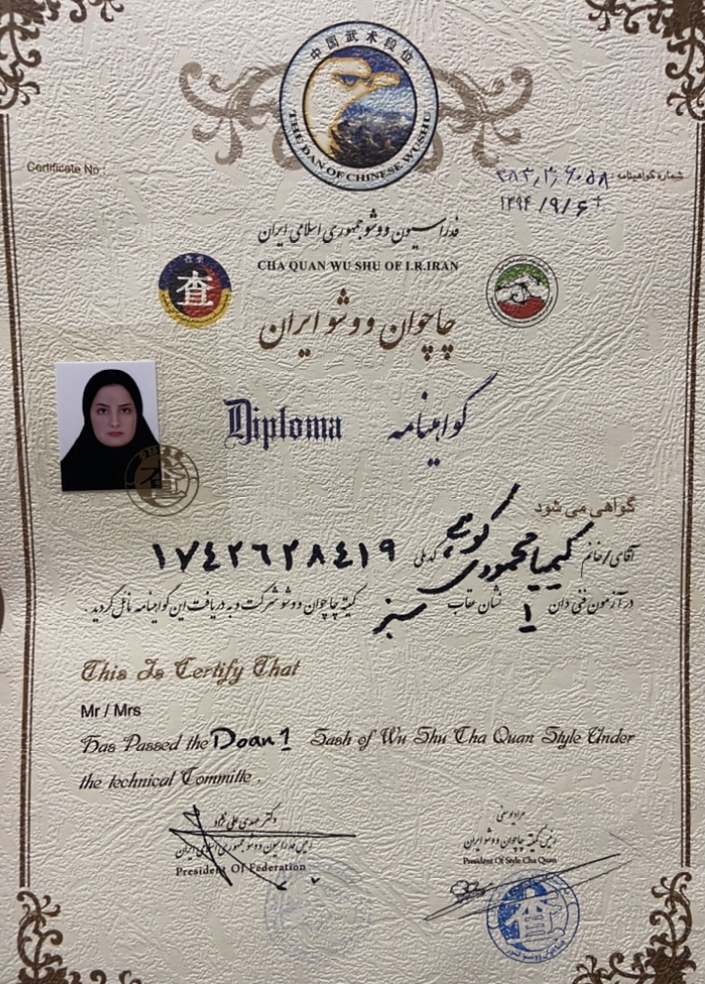 中国武术段位
THE DAN OF CHINESE WUSHU
Certificate No :
شماره گواهینامه :
۱۳۹۴/۹/۶
فدراسیون ووشو جمهوری اسلامی ایران
CHA QUAN WU SHU OF I.R.IRAN
查
چاچوان ووشو ایران
Diploma گواهینامه
گواهی می شود
آقای/خانم کیمیا محمودی کدملی ۱۷۴۲۶۲۸۴۱۹
در آزمون فنی دان ۱ نشان عقاب سبز کمیته چاچوان ووشو شرکت و به دریافت این گواهینامه نائل گردید.
This Is Certify That
Mr / Mrs
Has Passed the Doan 1 Sash of Wu Shu Cha Quan Style Under
the technical Committe .
دکتر مهدی علی نژاد
رئیس فدراسیون ووشو جمهوری اسلامی ایران
President Of Federation
رئیس کمیته چاچوان ووشو ایران
President Of Style Cha Quan